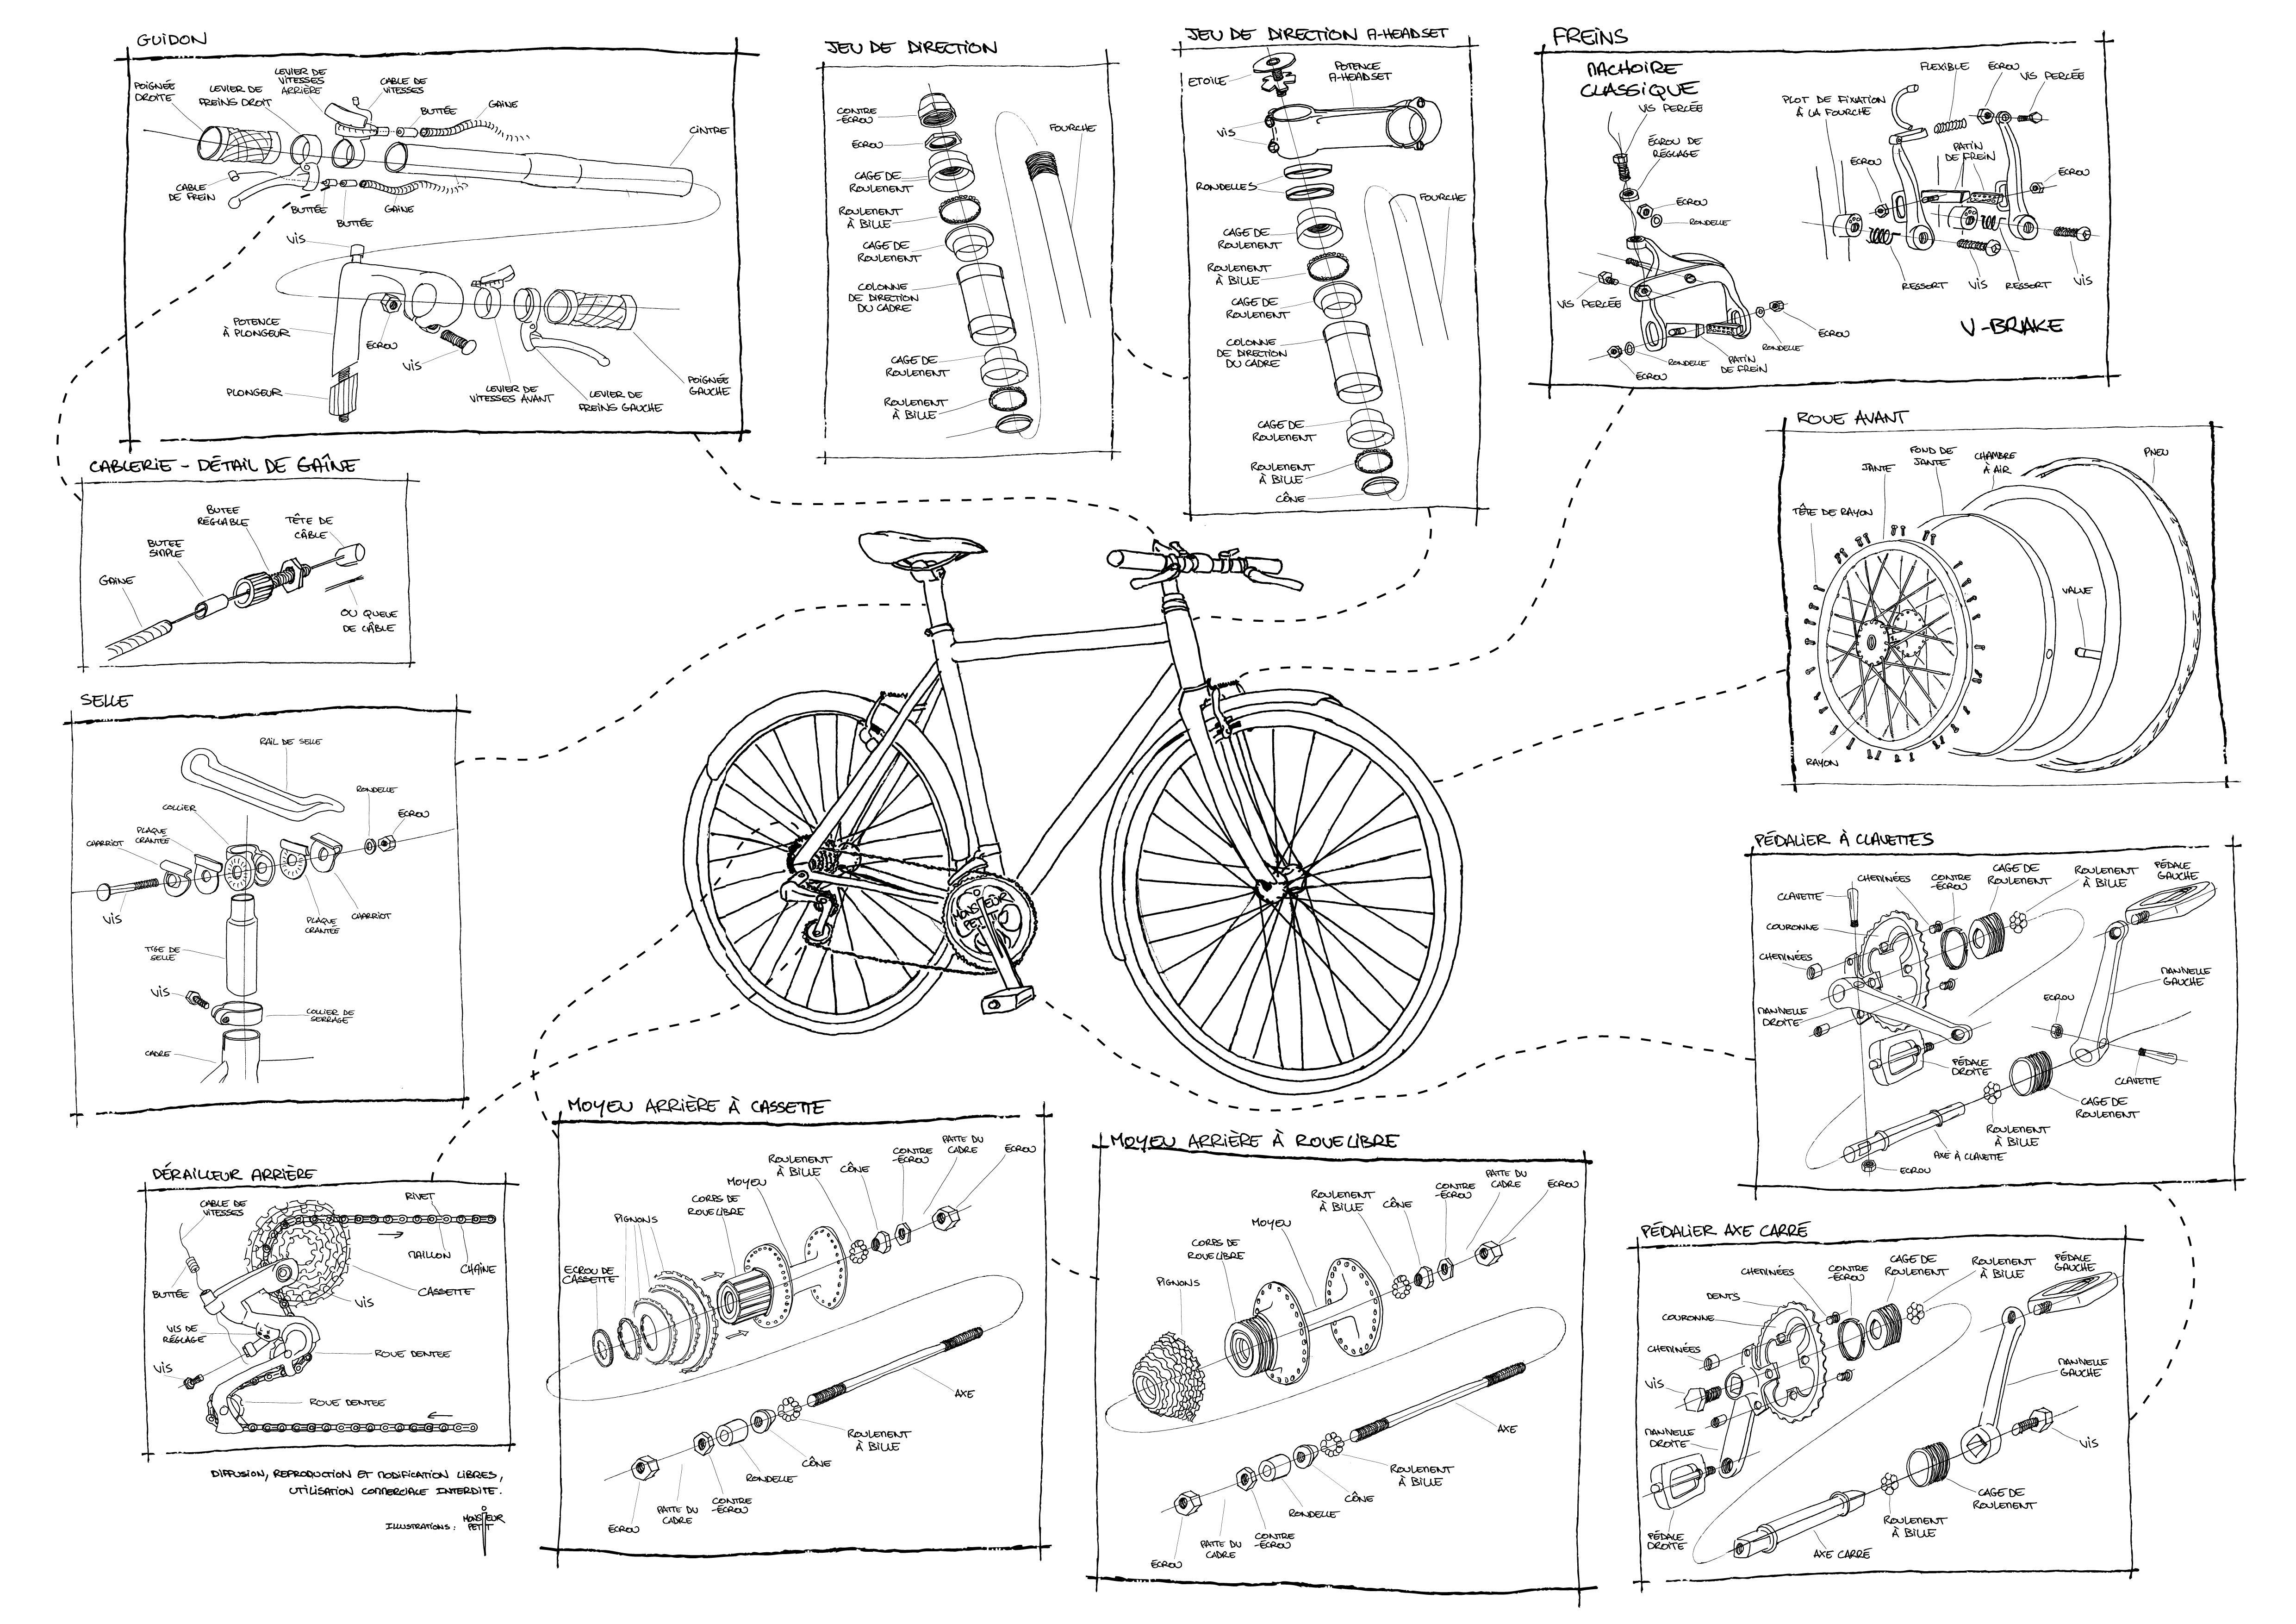 GUIDON
POIGNÉE
DROITE
LEVIER DE
FREINS DROIT
LEVIER DE
VITESSES
ARRIÈRE
CABLE DE
VITESSES
BUTTÉE
GAINE
CINTRE
CABLE
DE FREIN
BUTTÉE
BUTTÉE
GAINE
VIS
POTENCE
À PLONGEUR
ECROU
VIS
PLONGEUR
LEVIER DE
VITESSES AVANT
LEVIER DE
FREINS GAUCHE
POIGNÉE
GAUCHE
JEU DE DIRECTION
CONTRE
-ECROU
ECROU
CAGE DE
ROULEMENT
ROULEMENT
À BILLE
CAGE DE
ROULEMENT
COLONNE
DE DIRECTION
DU CADRE
CAGE DE
ROULEMENT
ROULEMENT
À BILLE
FOURCHE
JEU DE DIRECTION A-HEADSET
ETOILE
POTENCE
A-HEADSET
VIS
RONDELLES
FOURCHE
CAGE DE
ROULEMENT
ROULEMENT
À BILLE
CAGE DE
ROULEMENT
COLONNE
DE DIRECTION
DU CADRE
CAGE DE
ROULEMENT
ROULEMENT
À BILLE
CÔNE
FREINS
MACHOIRE
CLASSIQUE
VIS PERCÉE
ÉCROU DE
RÉGLAGE
ECROU
RONDELLE
VIS PERCÉE
ECROU
RONDELLE
RONDELLE
ECROU
PATIN
DE FREIN
PLOT DE FIXATION
À LA FOURCHE
FLEXIBLE
ECROU
VIS PERCÉE
ECROU
PATIN
DE FREIN
ECROU
RESSORT
VIS
RESSORT
VIS
V-BRAKE
CABLERIE - DÉTAIL DE GAÎNE
BUTEE
RÉGLABLE
TÊTE DE
CÂBLE
BUTEE
SIMPLE
GAINE
OU QUEUE
DE CÂBLE
ROUE AVANT
TÊTE DE RAYON
JANTE
FOND DE
JANTE
CHAMBRE
À AIR
PNEU
VALVE
RAYON
SELLE
RAIL DE SELLE
COLLIER
RONDELLE
ECROU
CHARRIOT
PLAQUE
CRANTÉE
VIS
PLAQUE
CRANTÉE
CHARRIOT
TIGE DE
SELLE
VIS
COLLIER DE
SERRAGE
CADRE
MONSIEUR
PETIT
PÉDALIER À CLAVETTES
CLAVETTE
CHEMINÉES
CONTRE
-ECROU
CAGE DE
ROULEMENT
ROULEMENT
À BILLE
PÉDALE
GAUCHE
COURONNE
CHEMINÉES
MANNELLE
DROITE
PÉDALE
DROITE
ECROU
MANNELLE
GAUCHE
CLAVETTE
CAGE DE
ROULEMENT
ROULEMENT
À BILLE
AXE À CLAVETTE
ECROU
DÉRAILLEUR ARRIÈRE
CABLE DE
VITESSES
RIVET
MAILLON
CHAÎNE
BUTTÉE
CASSETTE
VIS
VIS DE
RÉGLAGE
ROUE DENTEE
VIS
ROUE DENTEE
DIFFUSION, REPRODUCTION ET MODIFICATION LIBRES,
UTILISATION COMMERCIALE INTERDITE.
ILLUSTRATIONS : MONSIEUR
PETIT
MOYEU ARRIÈRE À CASSETTE
ECROU DE
CASSETTE
PIGNONS
CORPS DE
ROUE LIBRE
MOYEU
ROULEMENT
À BILLE
CÔNE
CONTRE
-ECROU
PATTE DU
CADRE
ECROU
AXE
ROULEMENT
À BILLE
CÔNE
RONDELLE
CONTRE
-ECROU
PATTE DU
CADRE
ECROU
MOYEU ARRIÈRE À ROUE LIBRE
PIGNONS
CORPS DE
ROUE LIBRE
MOYEU
ROULEMENT
À BILLE
CÔNE
CONTRE
-ECROU
PATTE DU
CADRE
ECROU
AXE
ROULEMENT
À BILLE
CÔNE
RONDELLE
CONTRE
-ECROU
PATTE DU
CADRE
ECROU
PÉDALIER AXE CARRÉ
CHEMINÉES
CONTRE
-ECROU
CAGE DE
ROULEMENT
ROULEMENT
À BILLE
PÉDALE
GAUCHE
DENTS
COURONNE
CHEMINÉES
VIS
MANNELLE
DROITE
PÉDALE
DROITE
MANNELLE
GAUCHE
VIS
CAGE DE
ROULEMENT
ROULEMENT
À BILLE
AXE CARRÉ